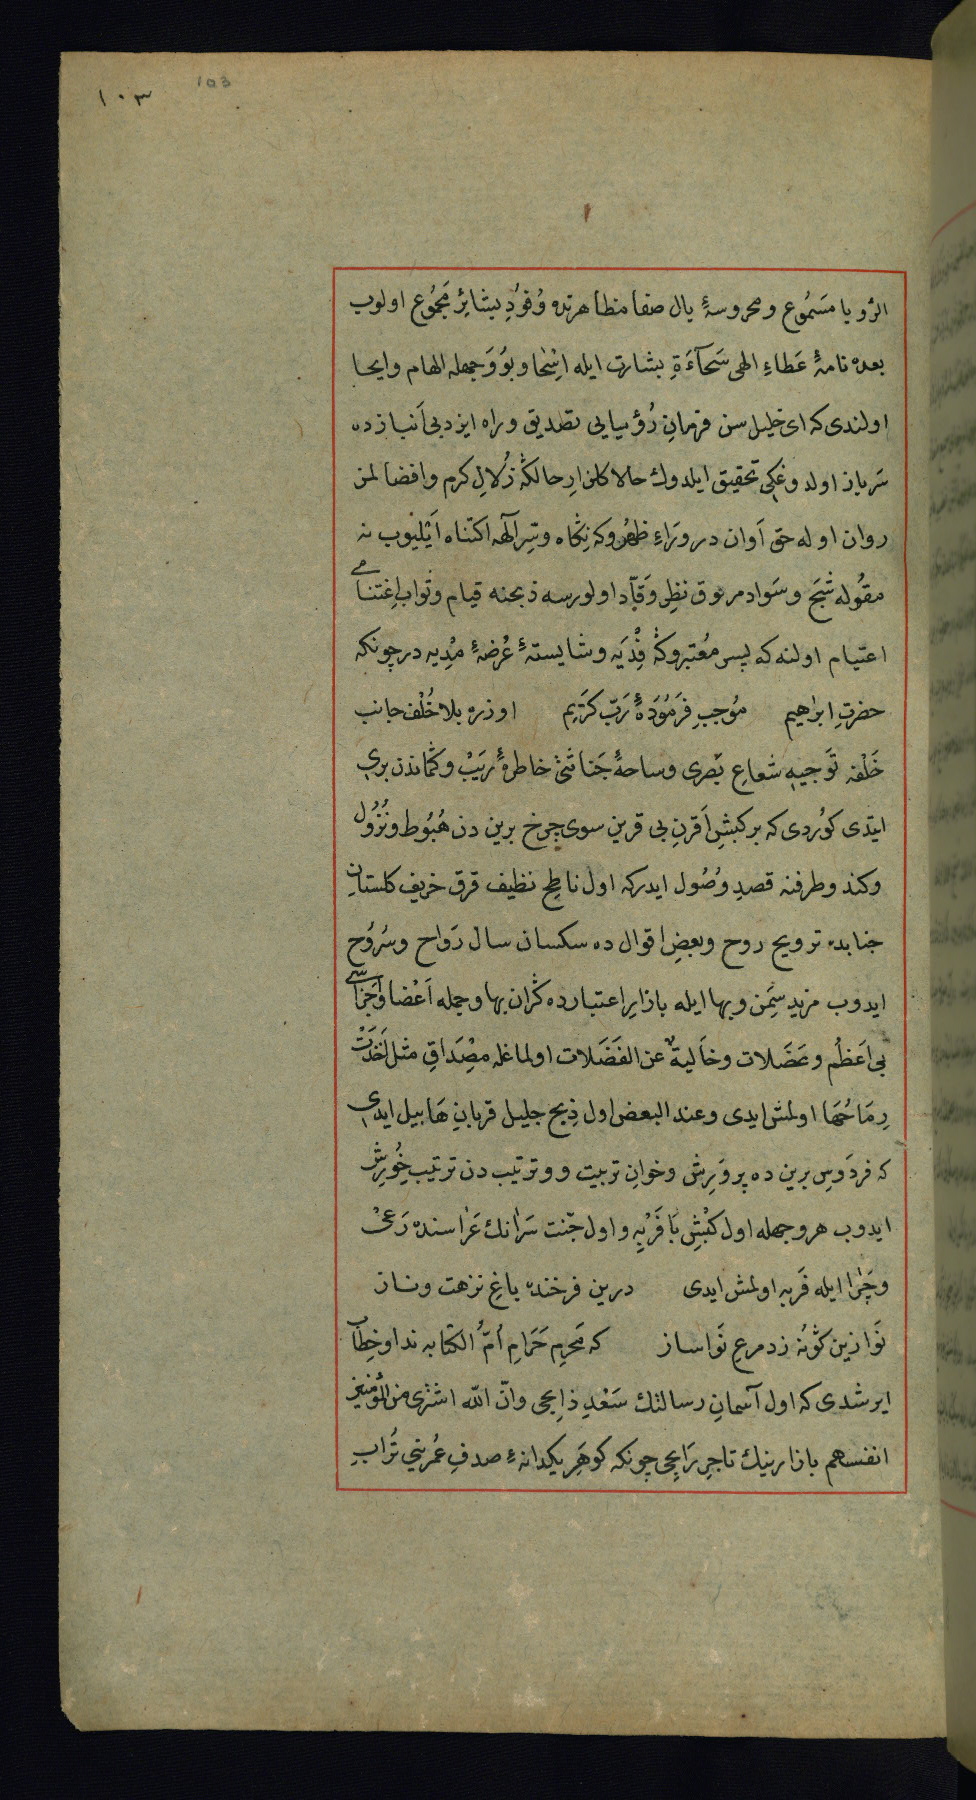 ١٠٣
103
الرؤيا مَسْمُوع و محروسهٔ يال صفا مظاهرتده وُفودِ بشائر مَجْمُوع اولوب
بعده نامهٔ عَطاءِ الهى سَحآءَةِ بشارت ايله اِنْحا و بُو وَجهله الهام و ايحا
اولندى كه اى خليل سن فرمانِ رُؤيايى تصديق و راه ايزد بى اَنبازده
سَرباز اولدوغكى تحقيق ايلدوك حالا كلزارِ حالكه زُلالِ كرم و افضالمز
روان اوله حق آوان در وَرَاءِ ظَهْروكه نِكاه و سِرِّ آلهه اكتناه اَيْليوب نه
مقُوله شَبَح و سَواد مرموق نظرِ وَقّاد اولورسه ذبحنه قيام و ثواب اِغتنامى
اعتيام اولنه كه پسر مُعتبروكه فِدْيَه و شايستهٔ عُرضهٔ مُدِيه در چونكه
حضرتِ ابراهيم مُوجبِ فرَمُودَهٔ رَبّ كَرَيم اوزره بلا خُلْف جانب
خَلْفه تَوجيهِ شعاعِ بَصرى و ساحهٔ جَنانِى خاطرهٔ رَيَبْ و كُماندن برى
ايتدى كوُردى كه بر كبشِ اَقرنِ بى قرين سوى چرخ برين دن هُبُوط و نُزُول
و كندو طرفنه قصدِ وُصُول ايدركه اول ناطِحِ نظيف قرق خريف كلستانِ
جنابده ترويح روح و بعضِ اقوال ده سكسان سال رَواح و سُرُوح
ايدوب مزيد سِمَن و بها ايله بازارِ اعتبارده كران بها و جمله اَعْضا و اَجْزاسى
بى اَعظُم و عَضَلات و خَاليةٌ عن الفَضَلات اولماغله مِصْدَاقِ مثل اَخَذَتْ
رِمَاحُهَا اولمش ايدى و عند البعض اول ذِبح جليل قربانِ هَابيل ايدى
كه فردَوسِ برين ده پروَرِش و خوانِ تربيت و و ترتيب دن ترتيب خُورِش
ايدوب هر وجهله اول كَبْشِ بَا فَرْبِه و اول جنّت سَرانك عَراسنده رَعىْ
و چَرا ايله فَربه اولمش ايدى درين فرخنده باغِ نزهت و ناز
نَوا زين كوُنه زد مرغ نَواساز كه مَحرِمِ حَرَامِ اُمُّ الكتابه ندا و خطاب
ايرشدى كه اول آسمانِ رسالتك سَعْدِ ذابحى و انّ الله اشترى من المؤمنين
انفسهم بازارينك تاجرِ رَابحى چونكه كوهَرِ يكدانهٔ صدفِ عُمرينى تُرابِ